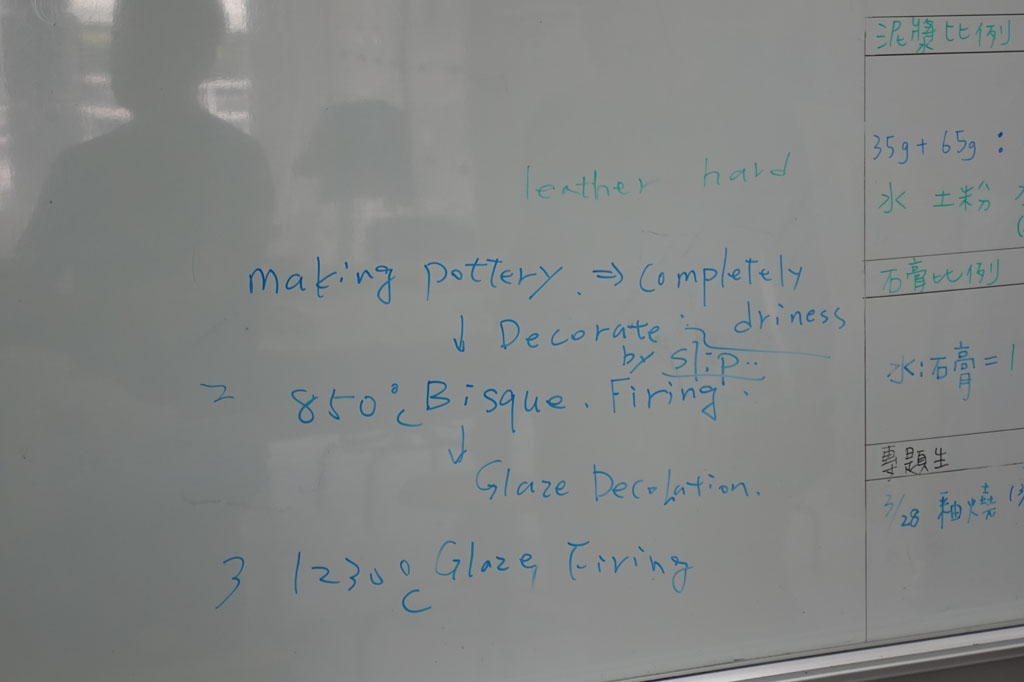 leather hard
making pottery. ⇒ completely
↓ Decorate driness
by slip..
2 850℃ Bisque. Firing.
↓
Glaze Decolation.
3 1230℃ Glaze Firing
泥漿比例
35g + 65g :
水 土粉
石膏比例
水:石膏 = 1
專題生
3/28 釉燒